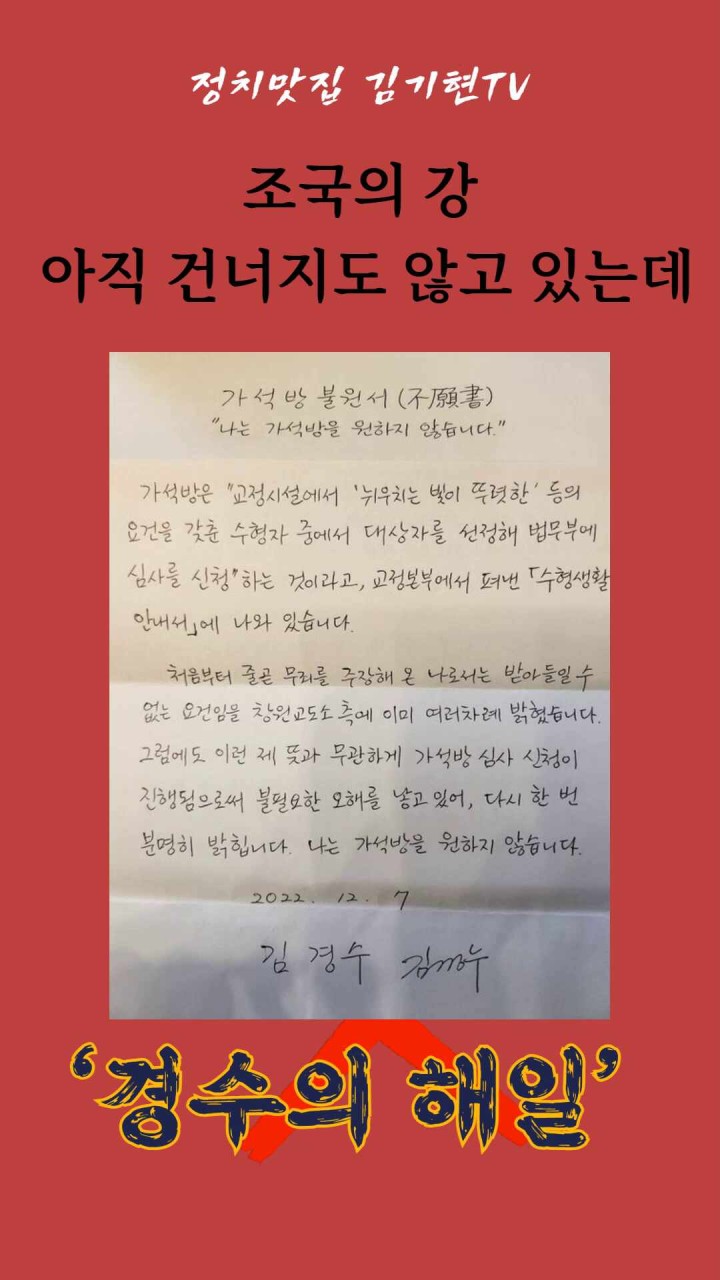 정치맛집 김기현TV
조국의 강
아직 건너지도 않고 있는데
가석방 불원서 (不願書)
"나는 가석방을 원하지 않습니다."
가석방은 "교정시설에서 '뉘우치는 빛이 뚜렷한' 등의
요건을 갖춘 수형자 중에서 대상자를 선정해 법무부에
심사를 신청"하는 것이라고, 교정본부에서 펴낸 「수형생활
안내서」에 나와 있습니다.
처음부터 줄곧 무죄를 주장해 온 나로서는 받아들일 수
없는 요건임을 창원교도소 측에 이미 여러차례 밝혔습니다.
그럼에도 이런 제 뜻과 무관하게 가석방 심사 신청이
진행됨으로써 불필요한 오해를 낳고 있어, 다시 한 번
분명히 밝힙니다. 나는 가석방을 원하지 않습니다.
2022. 12. 7
김 경수
'경수의 해일'